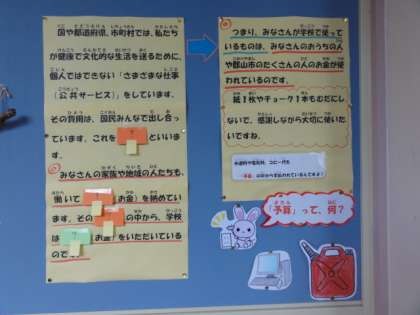 国や都道府県、市町村では、私たち
が健康で文化的な生活を送るために、
個人ではできない「さまざまな仕事
（公共サービス）」をしています。
その費用は、国民みんなで出し合っ
ています。これを ？ といいま
す。
みなさんの家族や地域の人たちも、
働いて （お金）を納めてい
ます。その の中から、学校
は ？ （お金）をいただいている
のです。
つまり、みなさんが学校で使って
いるものは、みなさんのおうちの人
や郡山市のたくさんの人のお金が使
われているのです。
紙１枚やチョーク１本もむだにし
ないで、感謝しながら大切に使いた
いですね。
水道料や電気料、コピー代も
「予算」の中から支払われているんですよ！
「予算」って、何？